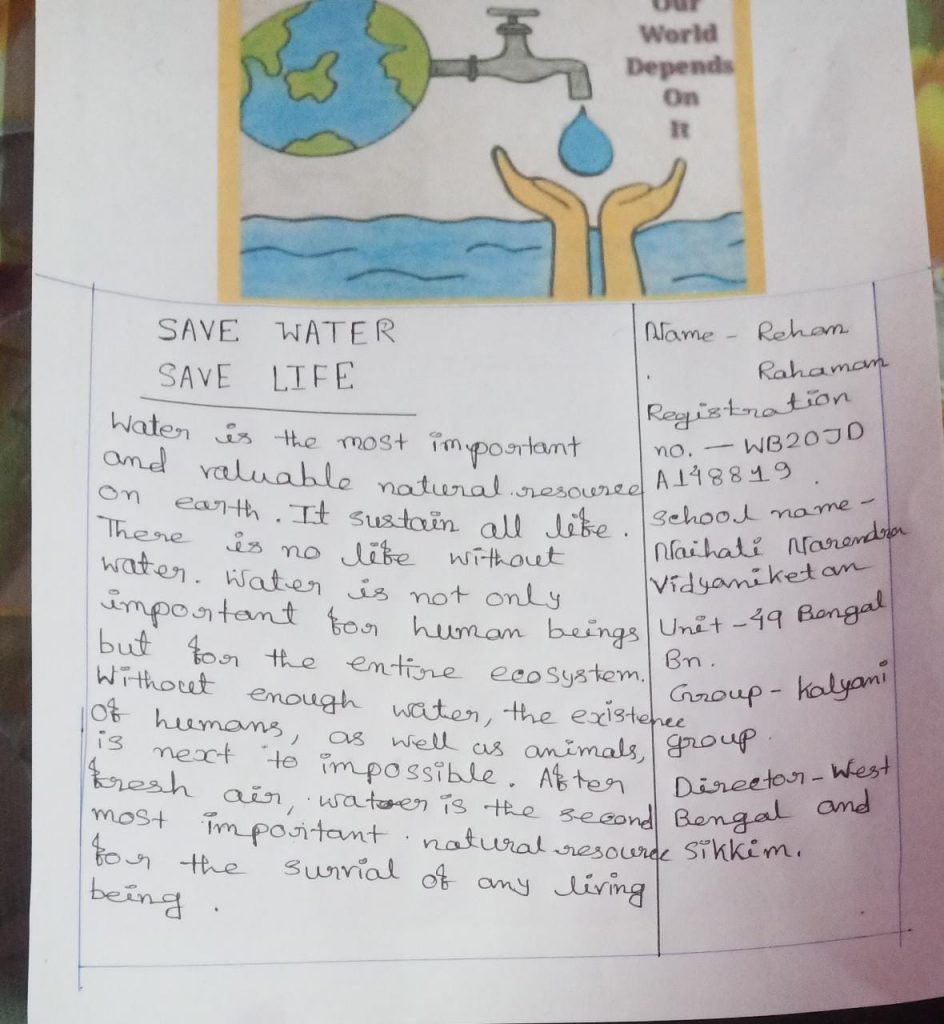 Our
World
Depends
On
It
SAVE WATER
SAVE LIFE
Water is the most important
and valuable natural resource
on earth. It sustain all life.
There is no life without
water. Water is not only
important for human beings
but for the entire ecosystem.
Without enough water, the existence
of humans, as well as animals,
is next to impossible. After
fresh air, water is the second
most important natural resource
for the survial of any living
being.
Name - Reham
Rahaman
Registration
no. - WB20JD
A148819.
School name -
Naihati Narendra
Vidyaniketan
Unit - 49 Bengal
Bn.
Group - Kalyani
group.
Director - West
Bengal and
Sikkim.